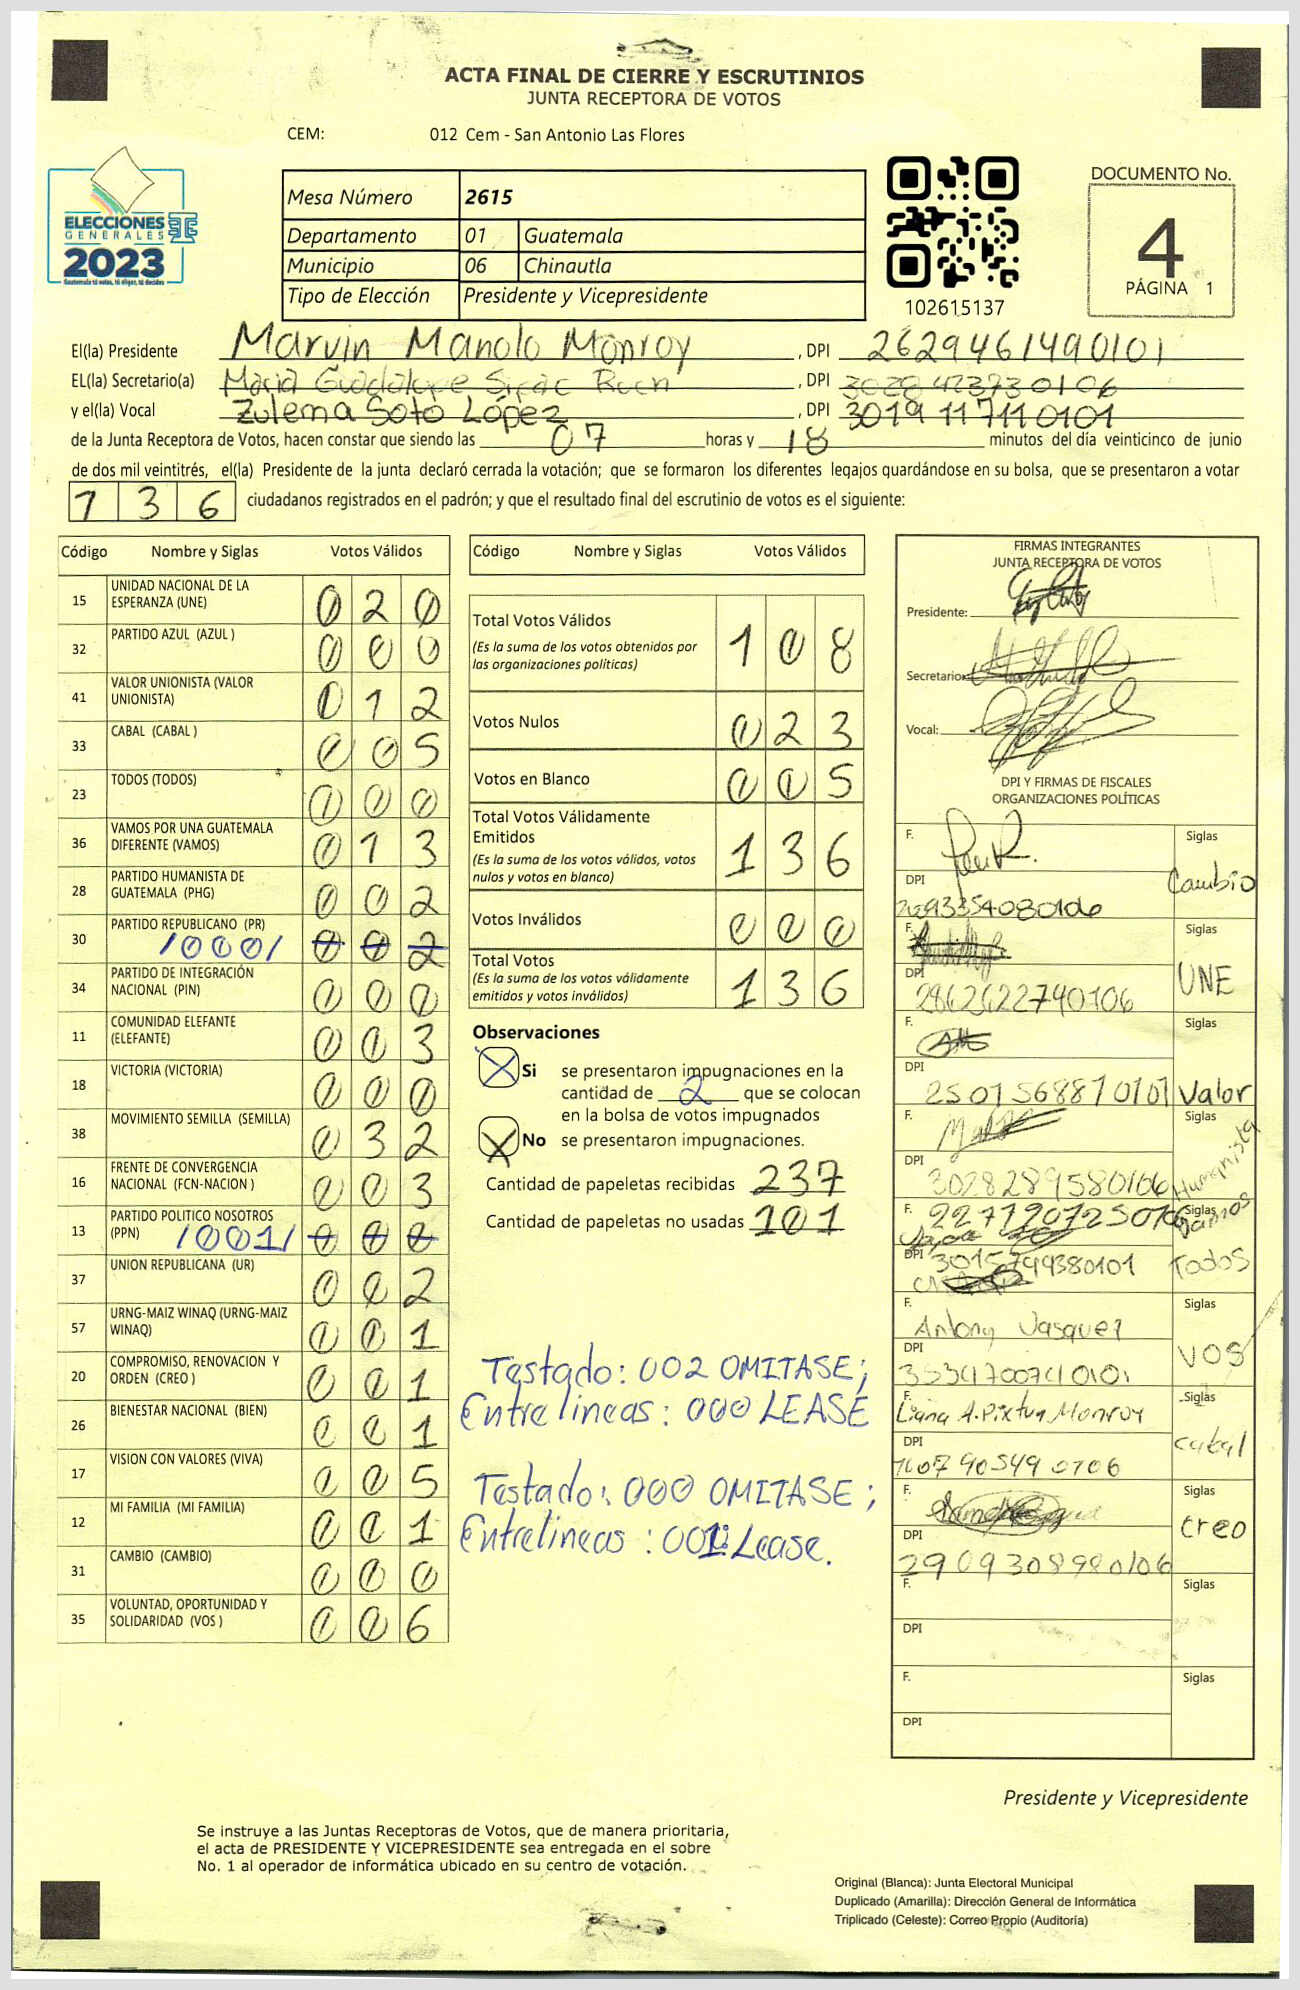 ACTA FINAL DE CIERRE Y ESCRUTINIOS
JUNTA RECEPTORA DE VOTOS
CEM: 012 Cem - San Antonio Las Flores
ELECCIONES
GENERALES
2023
Guatemala tú votas, tú eliges, tú decides
Mesa Número 2615
Departamento 01 Guatemala
Municipio 06 Chinautla
Tipo de Elección Presidente y Vicepresidente
102615137
DOCUMENTO No.
4
PÁGINA 1
El(la) Presidente Marvin Manolo Monroy , DPI 2629461490101
EL(la) Secretario(a) Maria Guadalupe , DPI 3028423730106
y el(la) Vocal Zulema Soto López , DPI 3019117110101
de la Junta Receptora de Votos, hacen constar que siendo las 07 horas y 18 minutos del día veinticinco de junio
de dos mil veintitrés, el(la) Presidente de la junta declaró cerrada la votación; que se formaron los diferentes legajos quardándose en su bolsa, que se presentaron a votar
136 ciudadanos registrados en el padrón; y que el resultado final del escrutinio de votos es el siguiente:
Código Nombre y Siglas Votos Válidos
15 UNIDAD NACIONAL DE LA ESPERANZA (UNE) 0 2 0
32 PARTIDO AZUL (AZUL ) 0 0 0
41 VALOR UNIONISTA (VALOR UNIONISTA) 0 1 2
33 CABAL (CABAL ) 0 0 5
23 TODOS (TODOS) 0 0 0
36 VAMOS POR UNA GUATEMALA DIFERENTE (VAMOS) 0 1 3
28 PARTIDO HUMANISTA DE GUATEMALA (PHG) 0 0 2
30 PARTIDO REPUBLICANO (PR) /000/ 0 0 2
34 PARTIDO DE INTEGRACIÓN NACIONAL (PIN) 0 0 0
11 COMUNIDAD ELEFANTE (ELEFANTE) 0 0 3
18 VICTORIA (VICTORIA) 0 0 0
38 MOVIMIENTO SEMILLA (SEMILLA) 0 3 2
16 FRENTE DE CONVERGENCIA NACIONAL (FCN-NACION ) 0 0 3
13 PARTIDO POLITICO NOSOTROS (PPN) /001/ 0 0 0
37 UNION REPUBLICANA (UR) 0 0 2
57 URNG-MAIZ WINAQ (URNG-MAIZ WINAQ) 0 0 1
20 COMPROMISO, RENOVACION Y ORDEN (CREO ) 0 0 1
26 BIENESTAR NACIONAL (BIEN) 0 0 1
17 VISION CON VALORES (VIVA) 0 0 5
12 MI FAMILIA (MI FAMILIA) 0 0 1
31 CAMBIO (CAMBIO) 0 0 0
35 VOLUNTAD, OPORTUNIDAD Y SOLIDARIDAD (VOS ) 0 0 6
Código Nombre y Siglas Votos Válidos
Total Votos Válidos 1 0 8
(Es la suma de los votos obtenidos por
las organizaciones políticas)
Votos Nulos 0 2 3
Votos en Blanco 0 0 5
Total Votos Válidamente
Emitidos 1 3 6
(Es la suma de los votos válidos, votos
nulos y votos en blanco)
Votos Inválidos 0 0 0
Total Votos 1 3 6
(Es la suma de los votos válidamente
emitidos y votos inválidos)
Observaciones
Si se presentaron impugnaciones en la
cantidad de 2 que se colocan
en la bolsa de votos impugnados
No se presentaron impugnaciones.
Cantidad de papeletas recibidas 237
Cantidad de papeletas no usadas 101
Testado: 002 OMITASE;
Entre lineas: 000 LEASE
Testado: 000 OMITASE;
Entrelineas: 001: Lease.
FIRMAS INTEGRANTES
JUNTA RECEPTORA DE VOTOS
Presidente:
Secretario:
Vocal:
DPI Y FIRMAS DE FISCALES
ORGANIZACIONES POLÍTICAS
F. Siglas
DPI Cambio
F. Siglas
DPI 2862622740106 UNE
F. Siglas
DPI 2501568870101 Valor
F. Siglas
DPI 3028289580106 Humanista
F. Siglas Vamos
DPI 3015799380101 Todos
F. Antony Vasquez Siglas
DPI VOS
F. Liana A. Pixtun Monroy Siglas
DPI cabal
F. Siglas
DPI 2909308980106 creo
F. Siglas
DPI
F. Siglas
DPI
Presidente y Vicepresidente
Se instruye a las Juntas Receptoras de Votos, que de manera prioritaria,
el acta de PRESIDENTE Y VICEPRESIDENTE sea entregada en el sobre
No. 1 al operador de informática ubicado en su centro de votación.
Original (Blanca): Junta Electoral Municipal
Duplicado (Amarilla): Dirección General de Informática
Triplicado (Celeste): Correo Propio (Auditoría)